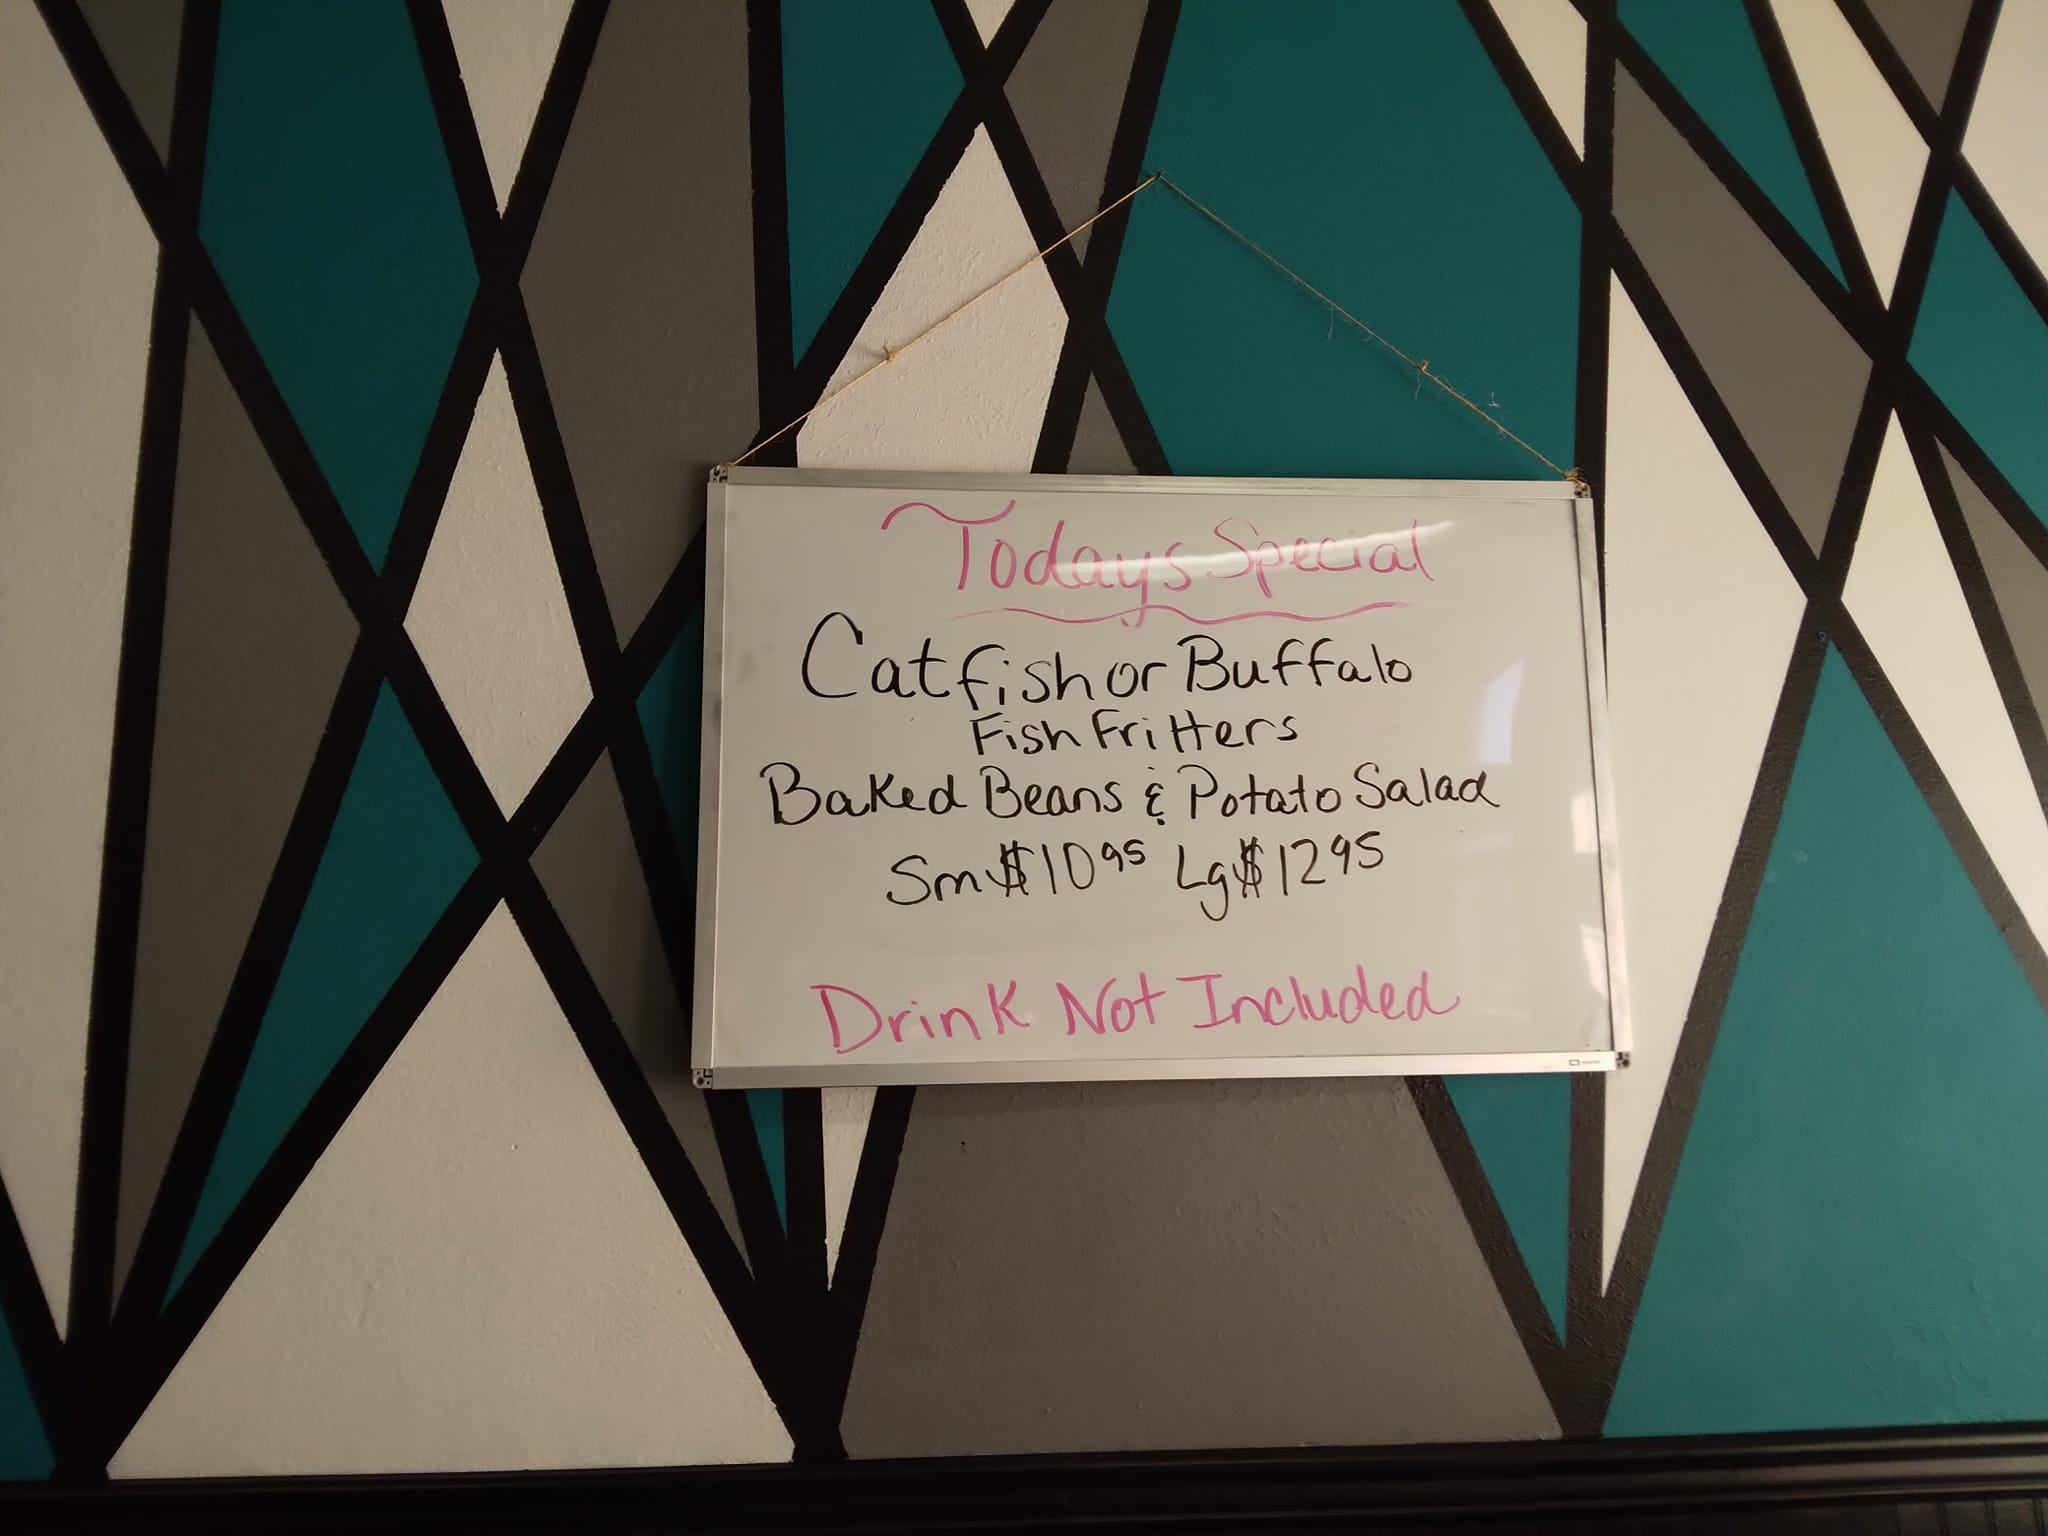 Todays Special
Catfish or Buffalo
Fish Fritters
Baked Beans & Potato Salad
Sm $10 95 Lg $12 95
Drink Not Included